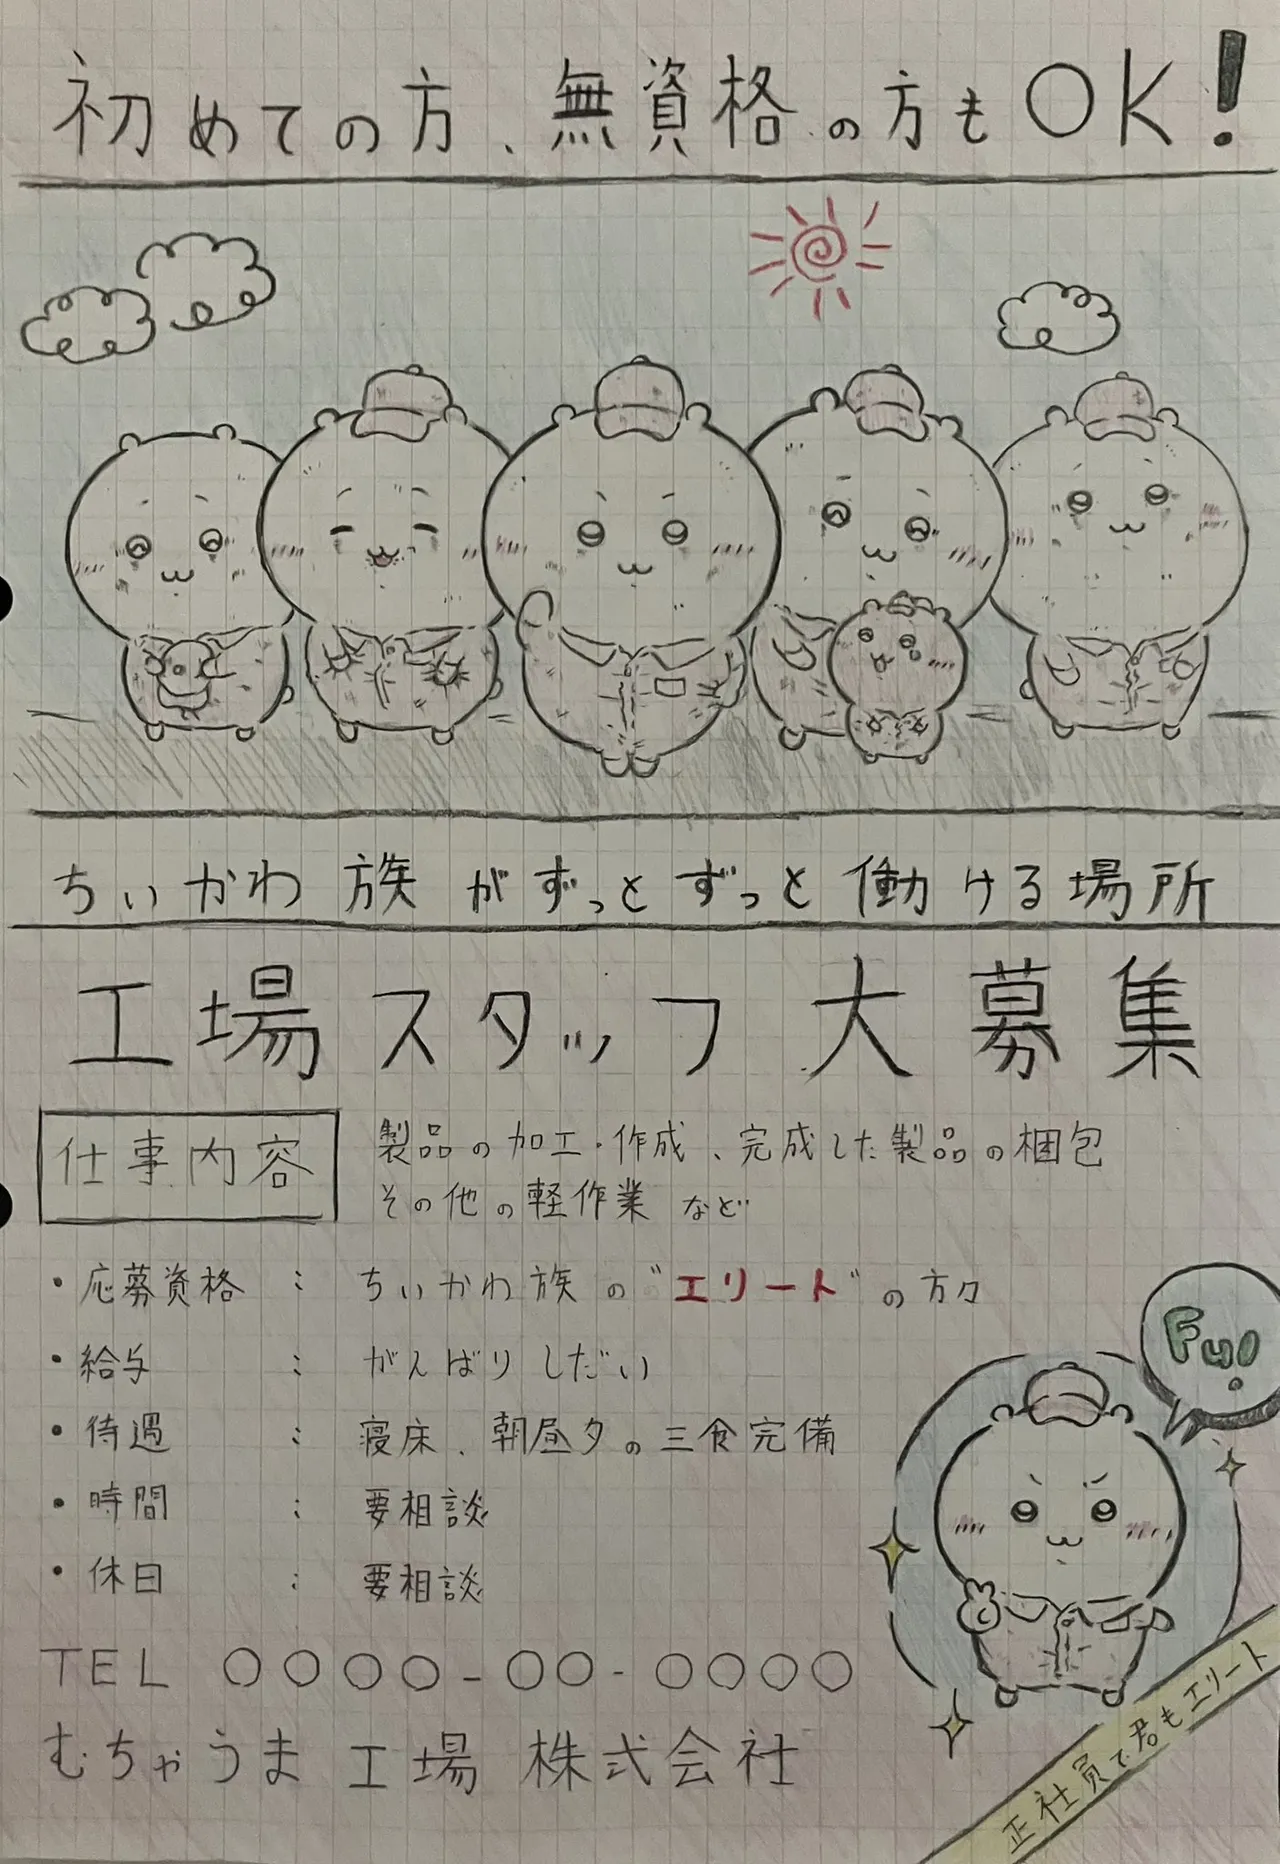 初めての方、無資格の方もOK!
ちぃかわ族がずっとずっと働ける場所
工場スタッフ大募集
仕事内容
製品の加工・作成、完成した製品の梱包
その他の軽作業など
・応募資格 : ちぃかわ族の"エリート"の方々
・給与 : がんばりしだい
・待遇 : 寝床、朝昼夕の三食完備
・時間 : 要相談
・休日 : 要相談
Fu!
TEL 〇〇〇〇-〇〇-〇〇〇〇
むちゃうま工場株式会社
正社員で君もエリート